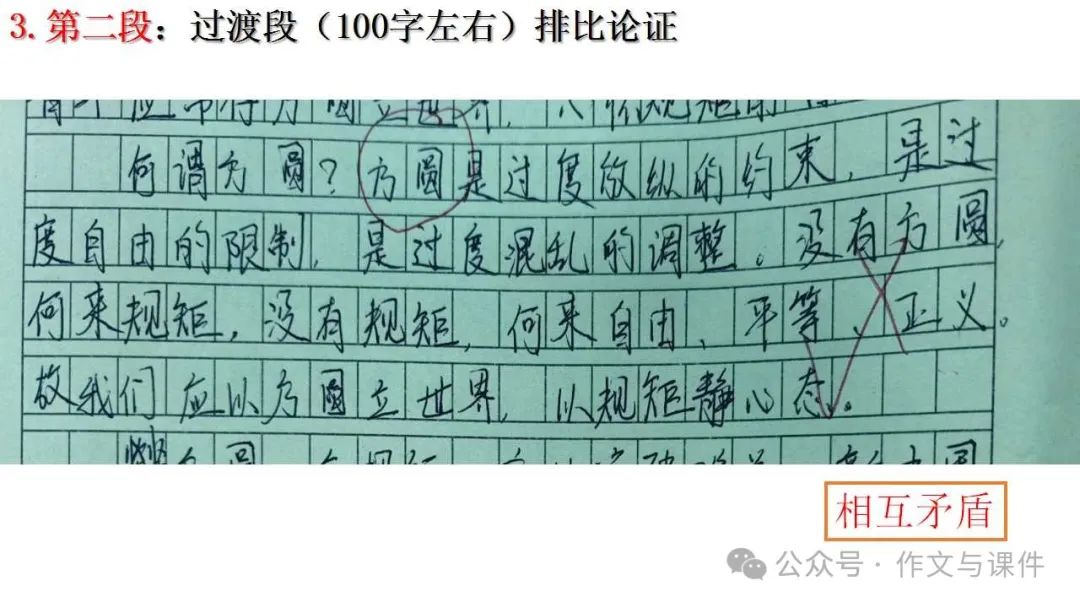 3. 第二段：过渡段（100字左右）排比论证
何谓方圆？方圆是过度放纵的约束，是过
度自由的限制，是过度混乱的调整。没有方圆，
何来规矩，没有规矩，何来自由、平等、正义。
故我们应以方圆立世界，以规矩静心态。
相互矛盾
公众号·作文与课件